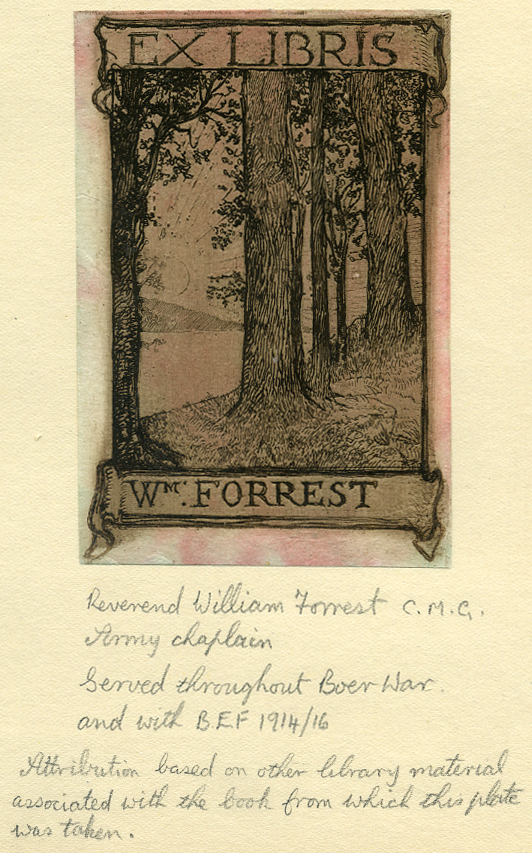 EX LIBRIS
WM. FORREST
Reverend William Forrest C.M.G.
Army chaplain
Served throughout Boer War.
and with B.E.F 1914/16
Attribution based on other library material
associated with the book from which this plate
was taken.